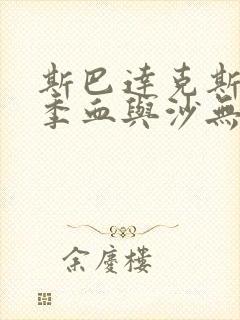 斯巴達克斯
季血與沙無
余慶樓